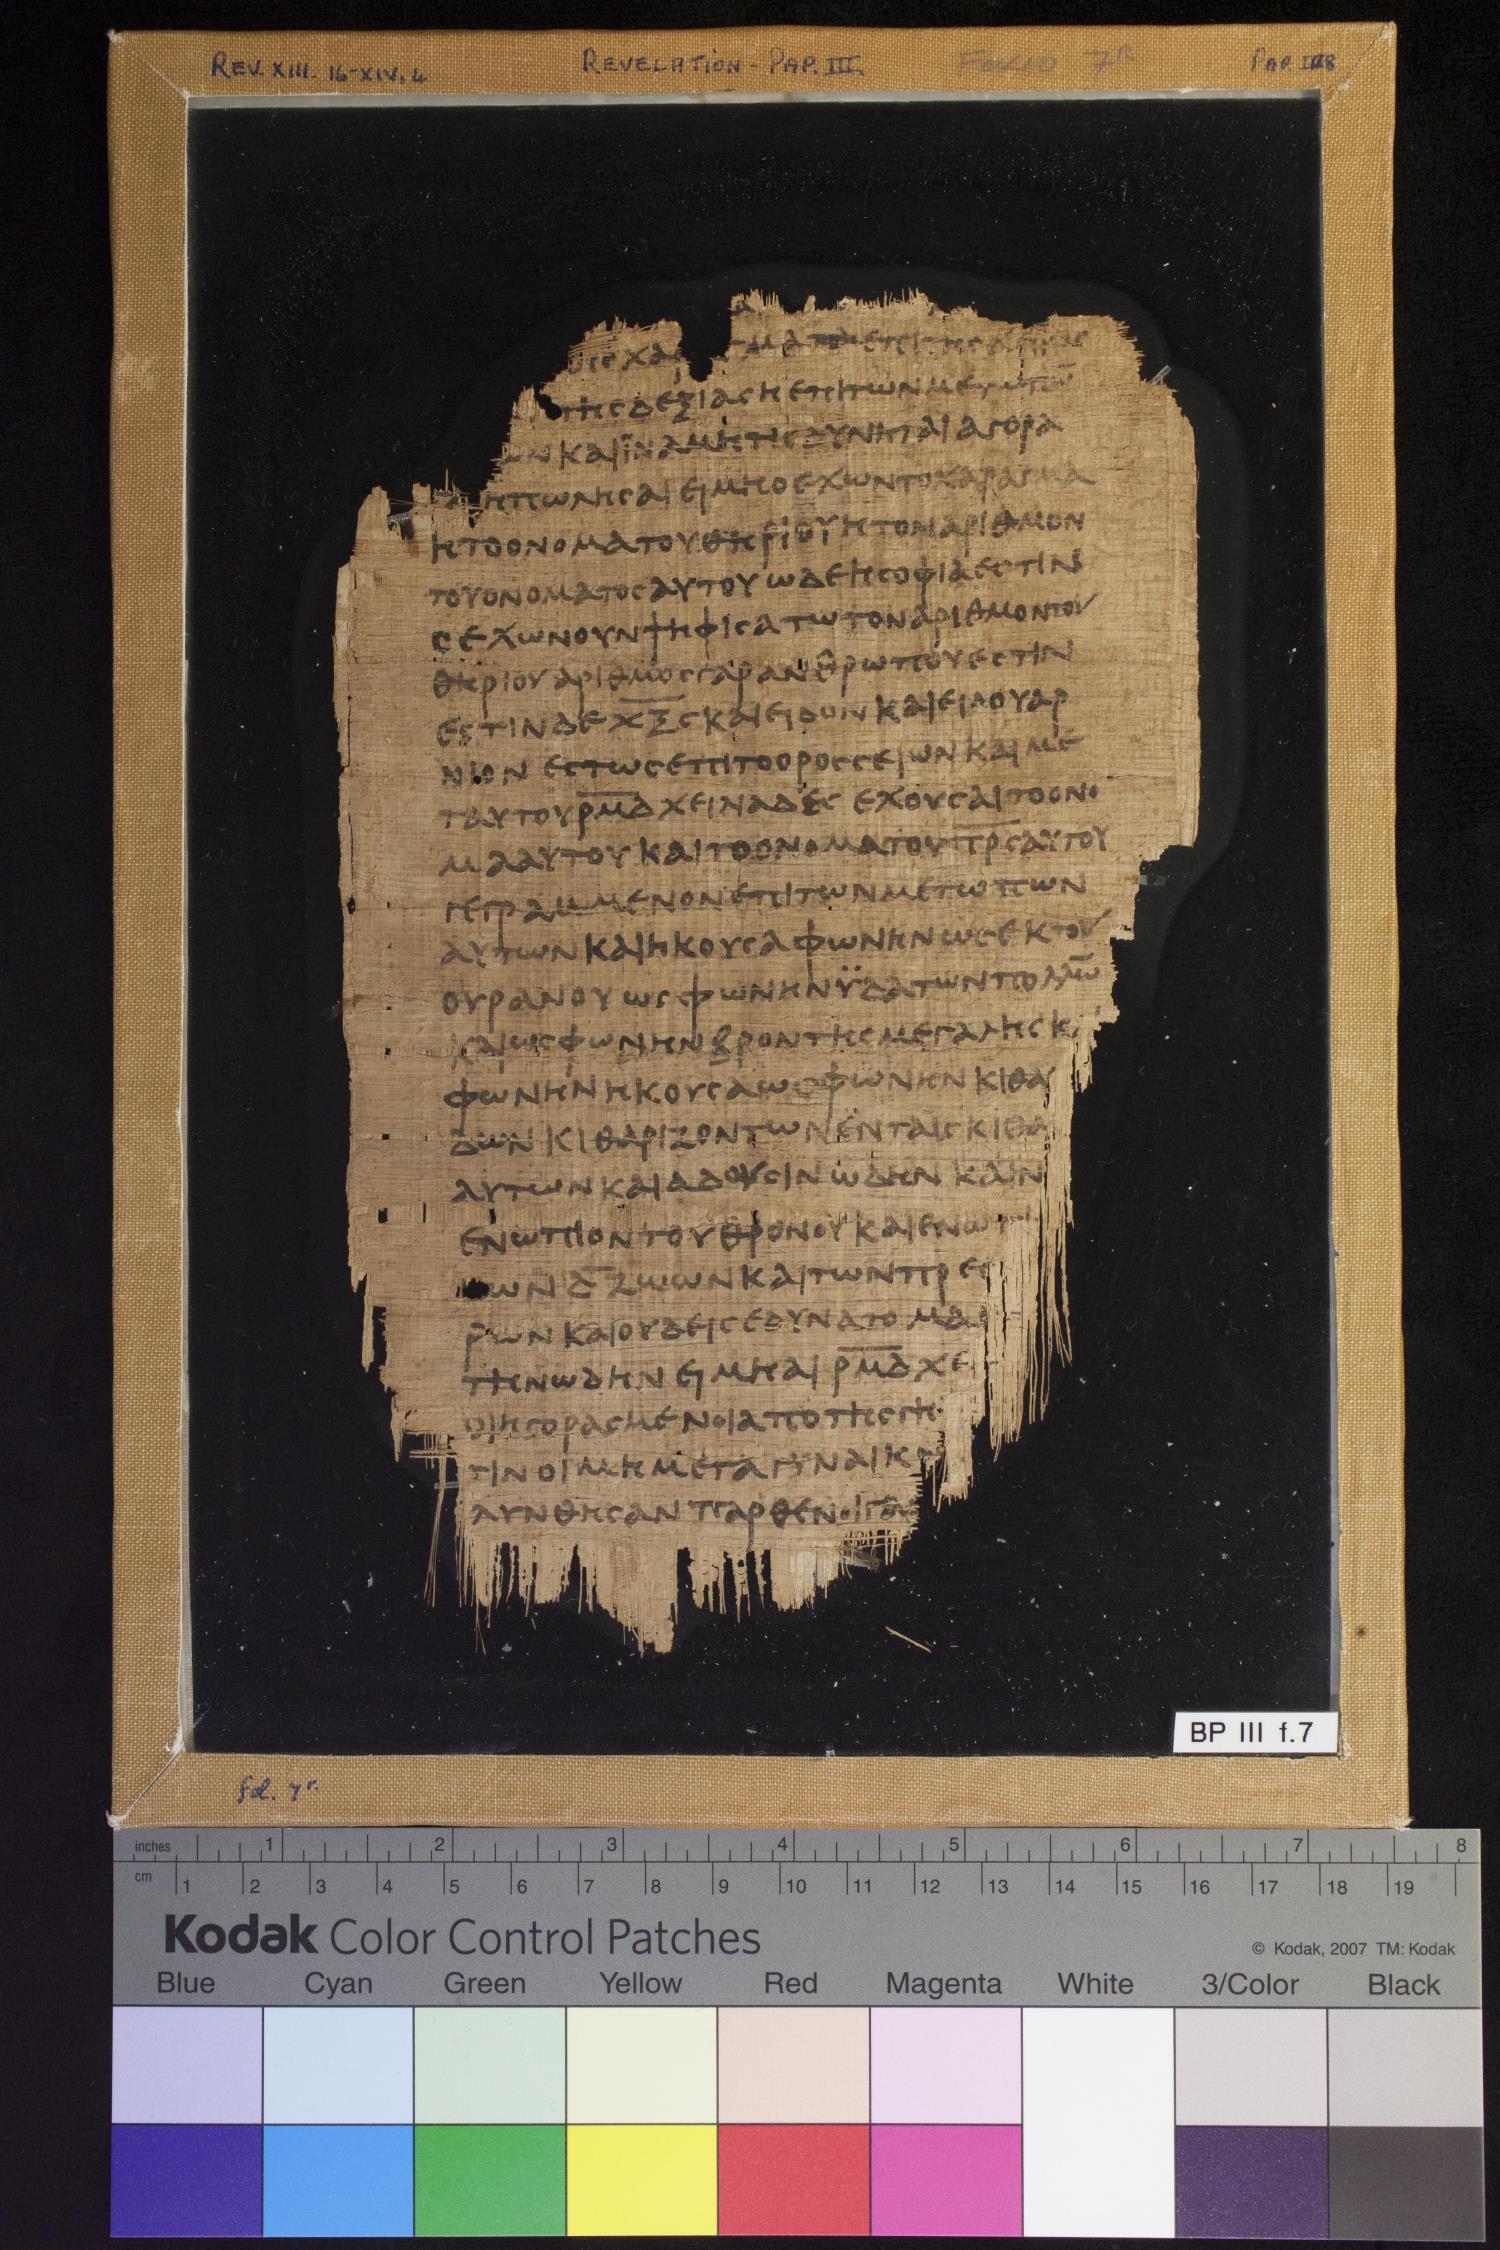 REV. XIII. 16-XIV. 4 REVELATION - PAP. III. FOLIO 7R PAP. III
ΧΑΡ ΓΜΑΤΑ ΕΠΙ ΤΗΣ
ΤΗϹ ΔΕΞΙΑϹ Η ΕΠΙ ΤΩΝ ΜΕΤΩΠΩ̅
ΩΝ ΚΑΙ ΪΝΑ ΜΗ ΤΙϹ ΔΥΝΗΤΑΙ ΑΓΟΡΑ
Η ΠΩΛΗϹΑΙ ΕΙ ΜΗ Ο ΕΧΩΝ ΤΟ ΧΑΡΑΓΜΑ
Η ΤΟ ΟΝΟΜΑ ΤΟΥ ΘΗΡΙΟΥ Η ΤΟΝ ΑΡΙΘΜΟΝ
ΤΟΥ ΟΝΟΜΑΤΟϹ ΑΥΤΟΥ ΩΔΕ Η ϹΟΦΙΑ ΕϹΤΙΝ
Ϲ ΕΧΩΝ ΟΥΝ ΨΗΦΙϹΑΤΩ ΤΟΝ ΑΡΙΘΜΟΝ ΤΟΥ
ΘΗΡΙΟΥ ΑΡΙΘΜΟϹ ΓΑΡ ΑΝΘΡΩΠΟΥ ΕϹΤΙΝ
ΕϹΤΙΝ ΔΕ Χ̅Ξ̅Ϲ̅ ΚΑΙ ΕΙΔΟΝ ΚΑΙ ΕΙΔΟΥ ΑΡ
ΝΙΟΝ ΕϹΤΩϹ ΕΠΙ ΤΟ ΟΡΟϹ ϹΕΙΩΝ ΚΑΙ ΜΕ
ΤΑΥΤΟΥ Ρ̅Μ̅Δ̅ ΧΕΙΝΑΔΕϹ ΕΧΟΥϹΑΙ ΤΟ ΟΝΟ
ΜΑ ΑΥΤΟΥ ΚΑΙ ΤΟ ΟΝΟΜΑ ΤΟΥ Π̅Ρ̅Ϲ̅ ΑΥΤΟΥ
ΓΕΓΡΑΜΜΕΝΟΝ ΕΠΙ ΤΩΝ ΜΕΤΩΠΩΝ
ΑΥΤΩΝ ΚΑΙ ΗΚΟΥϹΑ ΦΩΝΗΝ ΩϹ ΕΚ ΤΟΥ
ΟΥΡΑΝΟΥ ΩϹ ΦΩΝΗΝ ΫΔΑΤΩΝ ΠΟΛΛΩ̅
ΚΑΙ ΩϹ ΦΩΝΗΝ ΒΡΟΝΤΗϹ ΜΕΓΑΛΗϹ ΚΑΙ
ΦΩΝΗΝ ΗΚΟΥϹΑ ΩϹ ΦΩΝΗΝ ΚΙΘΑ
ΔΩΝ ΚΙΘΑΡΙΖΟΝΤΩΝ ΕΝ ΤΑΙϹ ΚΙΘΑ
ΑΥΤΩΝ ΚΑΙ ΑΔΟΥϹΙΝ ΩΔΗΝ ΚΑΙΝ
ΕΝΩΠΙΟΝ ΤΟΥ ΘΡΟΝΟΥ ΚΑΙ ΕΝΩΠΙ
ΤΩΝ Δ̅ ΖΩΩΝ ΚΑΙ ΤΩΝ ΠΡΕϹ
ΡΩΝ ΚΑΙ ΟΥΔΕΙϹ ΕΔΥΝΑΤΟ ΜΑ
ΤΗΝ ΩΔΗΝ ΕΙ ΜΗ ΑΙ Ρ̅Μ̅Δ̅ ΧΕΙ
ΟΙ ΗΓΟΡΑϹΜΕΝΟΙ ΑΠΟ ΤΗϹ ΓΗϹ
ΤΙΝ ΟΙ ΜΗ ΜΕΤΑ ΓΥΝΑΙΚ
ΛΥΝΘΗϹΑΝ ΠΑΡΘΕΝΟΙ ΓΑΡ
BP III f.7
fol. 7r.
inches 1 2 3 4 5 6 7 8
cm 1 2 3 4 5 6 7 8 9 10 11 12 13 14 15 16 17 18 19
Kodak Color Control Patches © Kodak, 2007 TM: Kodak
Blue Cyan Green Yellow Red Magenta White 3/Color Black